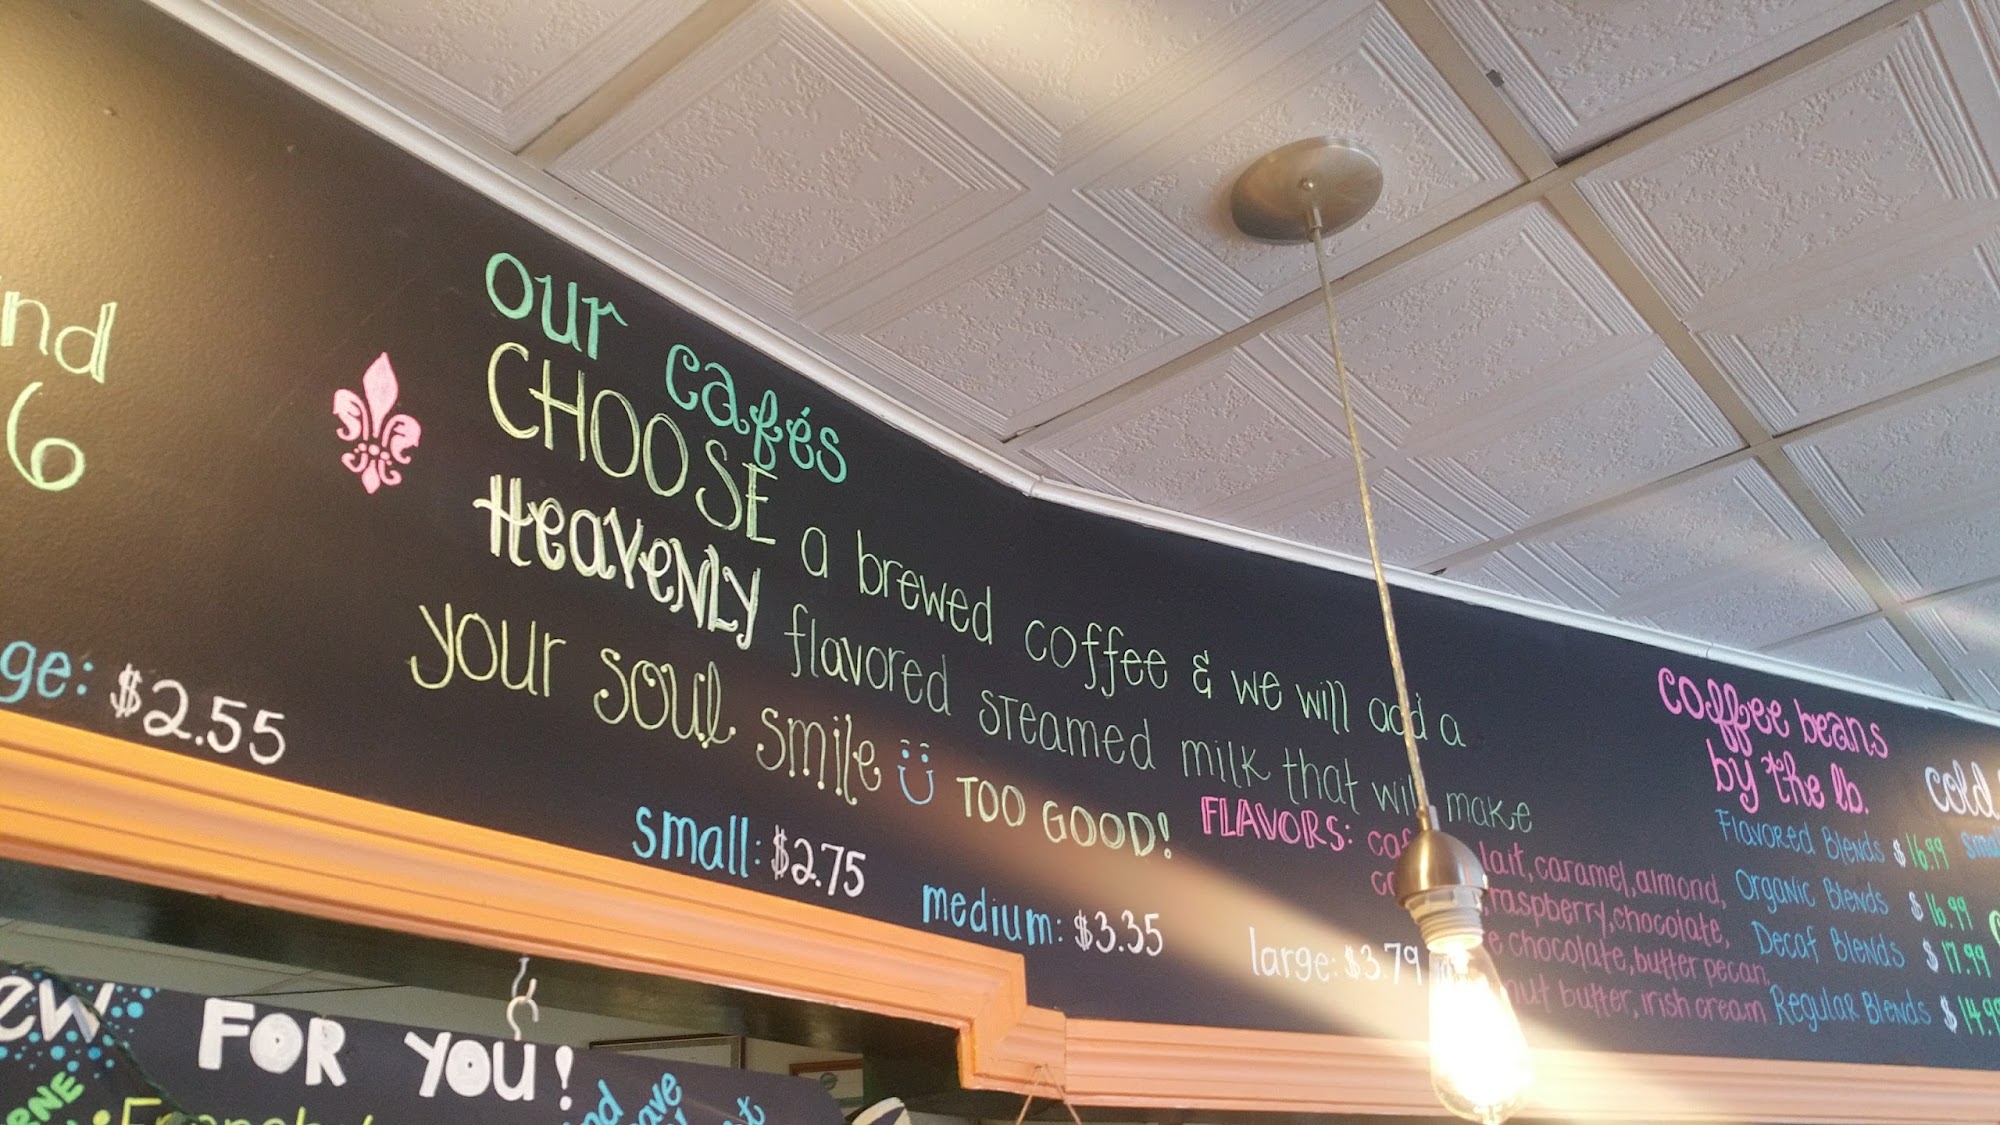 nd
6
ge: $2.55
our cafés
CHOOSE a brewed coffee & we will add a
Heavenly flavored steamed milk that will make
your soul smile TOO GOOD!
small: $2.75
medium: $3.35
large: $3.79
FLAVORS:
lait, caramel, almond,
raspberry, chocolate,
chocolate, butter pecan,
butter, irish cream
coffee beans
by the lb.
Flavored Blends $16.99
Organic Blends $16.99
Decaf Blends $17.99
Regular Blends $14.99
cold
small
FOR YOU!